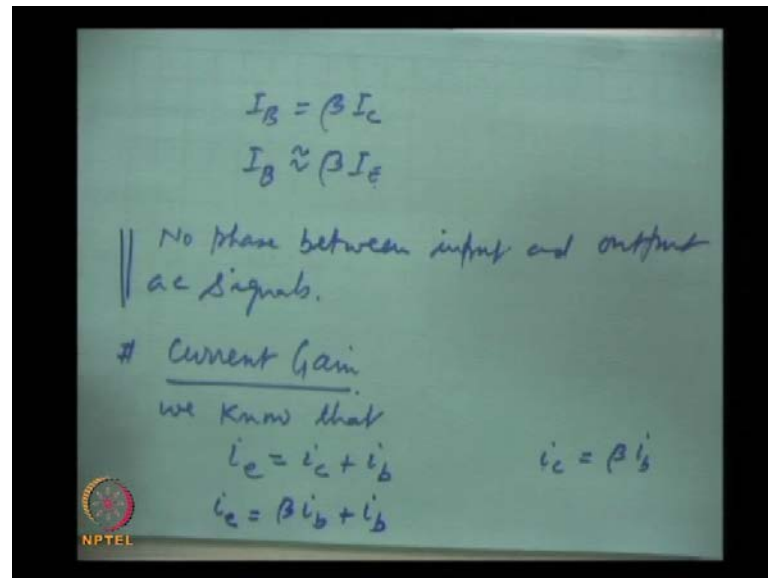 I_B = β I_C
I_B ≈ β I_E
No phase between input and output
ac signals.
# Current Gain
we know that
i_e = i_c + i_b i_c = β i_b
i_e = β i_b + i_b
NPTEL